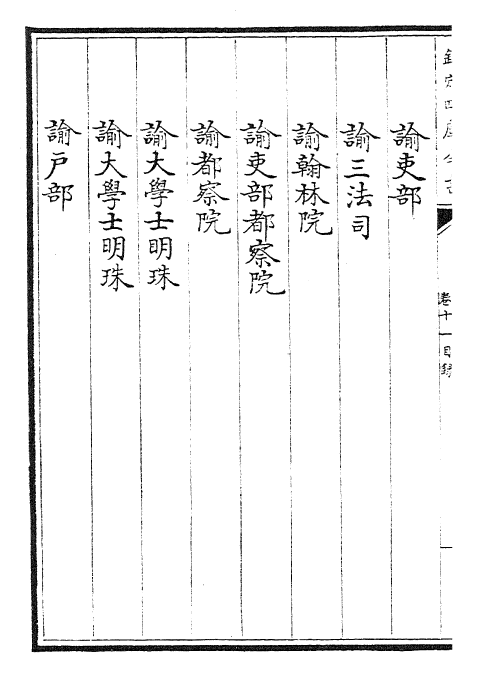 欽定四庫全書
卷十一目録
諭吏部
諭三法司
諭翰林院
諭吏部都察院
諭都察院
諭大學士明珠
諭大學士明珠
諭戸部